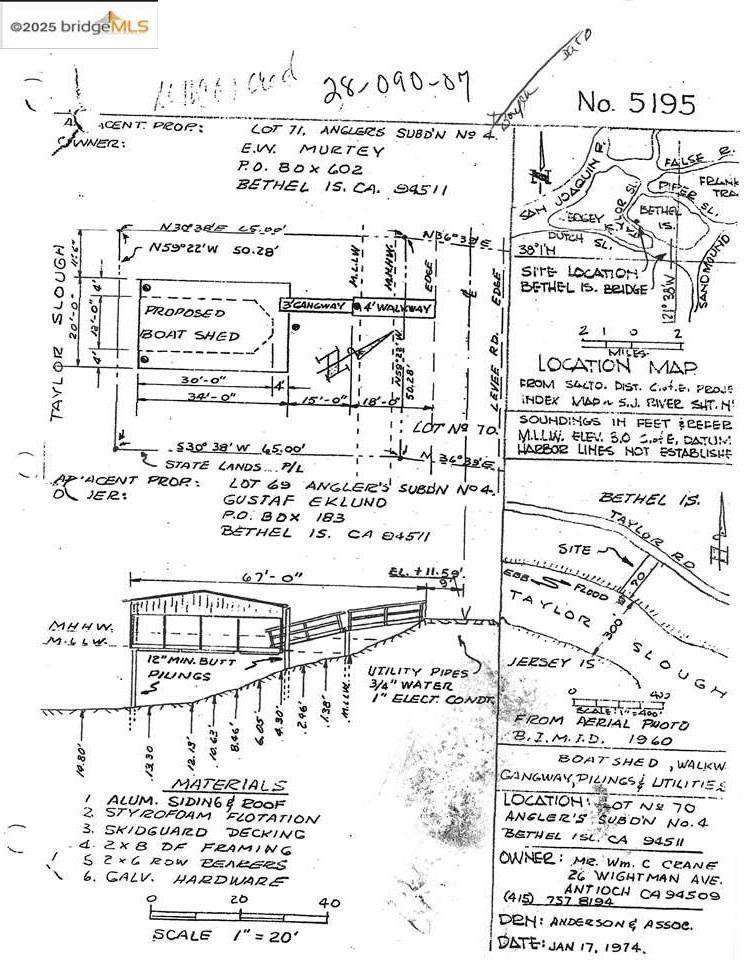 ©2025 bridgeMLS
28-090-07
No. 5195
ACENT PROP:
OWNER:
LOT 71, ANGLERS SUBD'N No 4.
E.W. MURTEY
P.O. BOX 602
BETHEL IS. CA. 94511
SAN JOAQUIN R.
FALSE R.
FRANK
PIPER SL.
TAYLOR SL.
BETHEL
IS.
DUTCH SL.
SANDMOUND
38°1'N
121°38'W
SITE LOCATION
BETHEL IS. BRIDGE
2 1 0 2
MILES
LOCATION MAP
FROM SACTO. DIST. C.of.E. PROJE
INDEX MAP
S.J. RIVER SHT. N
SOUNDINGS IN FEET & REFER
M.L.L.W. ELEV. 3.0 C.of E. DATUM
HARBOR LINES NOT ESTABLISHE
N30°38'E 65.00'
N59°22'W 50.28'
N36°38'E
TAYLOR SLOUGH
11'-6"
20'-0"
4'
12'-0"
4'
PROPOSED
BOAT SHED
3' GANGWAY
4' WALKWAY
M.L.L.W
M.H.H.W.
EDGE
LEVEE RD. EDGE
N59°22'W
50.28'
30'-0"
4'
34'-0"
15'-0"
18'-0"
LOT No 70
S30°38'W 65.00'
N 36°38'E
STATE LANDS P/L
ACENT PROP:
ER:
LOT 69 ANGLER'S SUBD'N No 4.
GUSTAF EKLUND
P.O. BOX 183
BETHEL IS. CA 94511
BETHEL IS.
TAYLOR RD
SITE
70
EBB
FLOOD
300
TAYLOR SLOUGH
JERSEY IS
0 400
SCALE: 1"=400'
FROM AERIAL PHOTO
B.I.M.I.D. 1960
67'-0"
EL. +11.59'
9'
MHHW.
M.L.L.W.
12" MIN. BUTT
PILINGS
UTILITY PIPES
3/4" WATER
1" ELECT. CONDT.
14.80'
13.30
12.13'
10.63'
8.46'
6.05'
4.30'
2.46'
.138'
M.L.L.W.
MATERIALS
1 ALUM. SIDING & ROOF
2 STYROFOAM FLOTATION
3. SKIDGUARD DECKING
4. 2x8 DF FRAMING
5 2x6 RDW BEARERS
6. GALV. HARDWARE
0 20 40
SCALE 1"=20'
BOAT SHED, WALKW
GANGWAY, PILINGS & UTILITIES
LOCATION: LOT No 70
ANGLER'S SUBD'N No. 4
BETHEL ISL. CA 94511
OWNER: MR. Wm. C CRANE
26 WIGHTMAN AVE.
ANTIOCH CA 94509
(415) 757 8194
DRN: ANDERSON & ASSOC.
DATE: JAN 17, 1974.